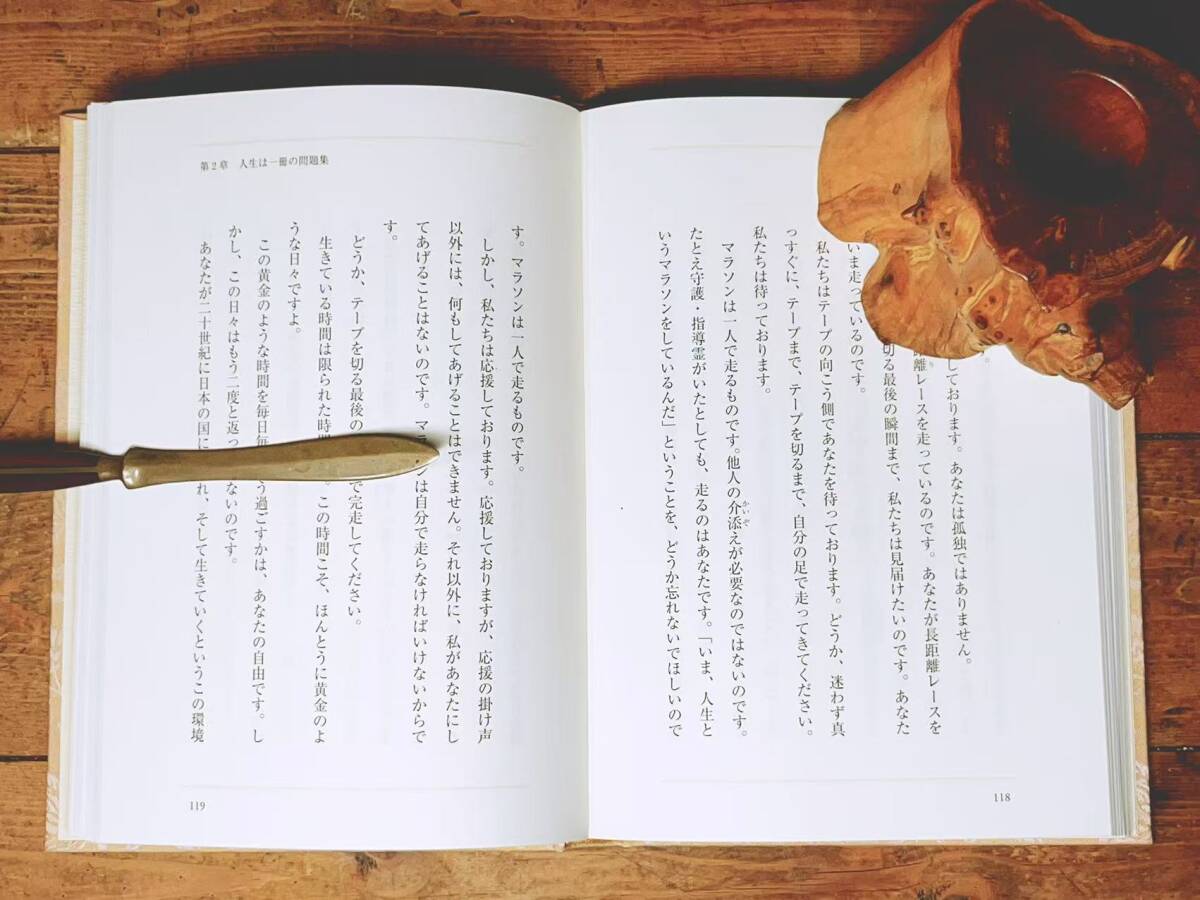 しております。あなたは孤独ではありません。
距離レースを走っているのです。あなたが長距離レースを
切る最後の瞬間まで、私たちは見届けたいのです。あなた
いま走っているのです。
私たちはテープの向こう側であなたを待っております。どうか、迷わず真
っすぐに、テープまで、テープを切るまで、自分の足で走ってきてください。
私たちは待っております。
マラソンは一人で走るものです。他人の介添えが必要なのではないのです。
かいぞ
たとえ守護・指導霊がいたとしても、走るのはあなたです。「いま、人生と
いうマラソンをしているんだ」ということを、どうか忘れないでほしいので
118
第2章 人生は一冊の問題集
す。マラソンは一人で走るものです。
しかし、私たちは応援しております。応援しておりますが、応援の掛け声
以外には、何もしてあげることはできません。それ以外に、私があなたにし
てあげることはないのです。マ ンは自分で走らなければいけないからで
す。
どうか、テープを切る最後の で完走してください。
生きている時間は限られた時 。この時間こそ、ほんとうに黄金のよ
うな日々ですよ。
この黄金のような時間を毎日毎 う過ごすかは、あなたの自由です。し
かし、この日々はもう二度と返っ ないのです。
あなたが二十世紀に日本の国に れ、そして生きていくというこの環境
119